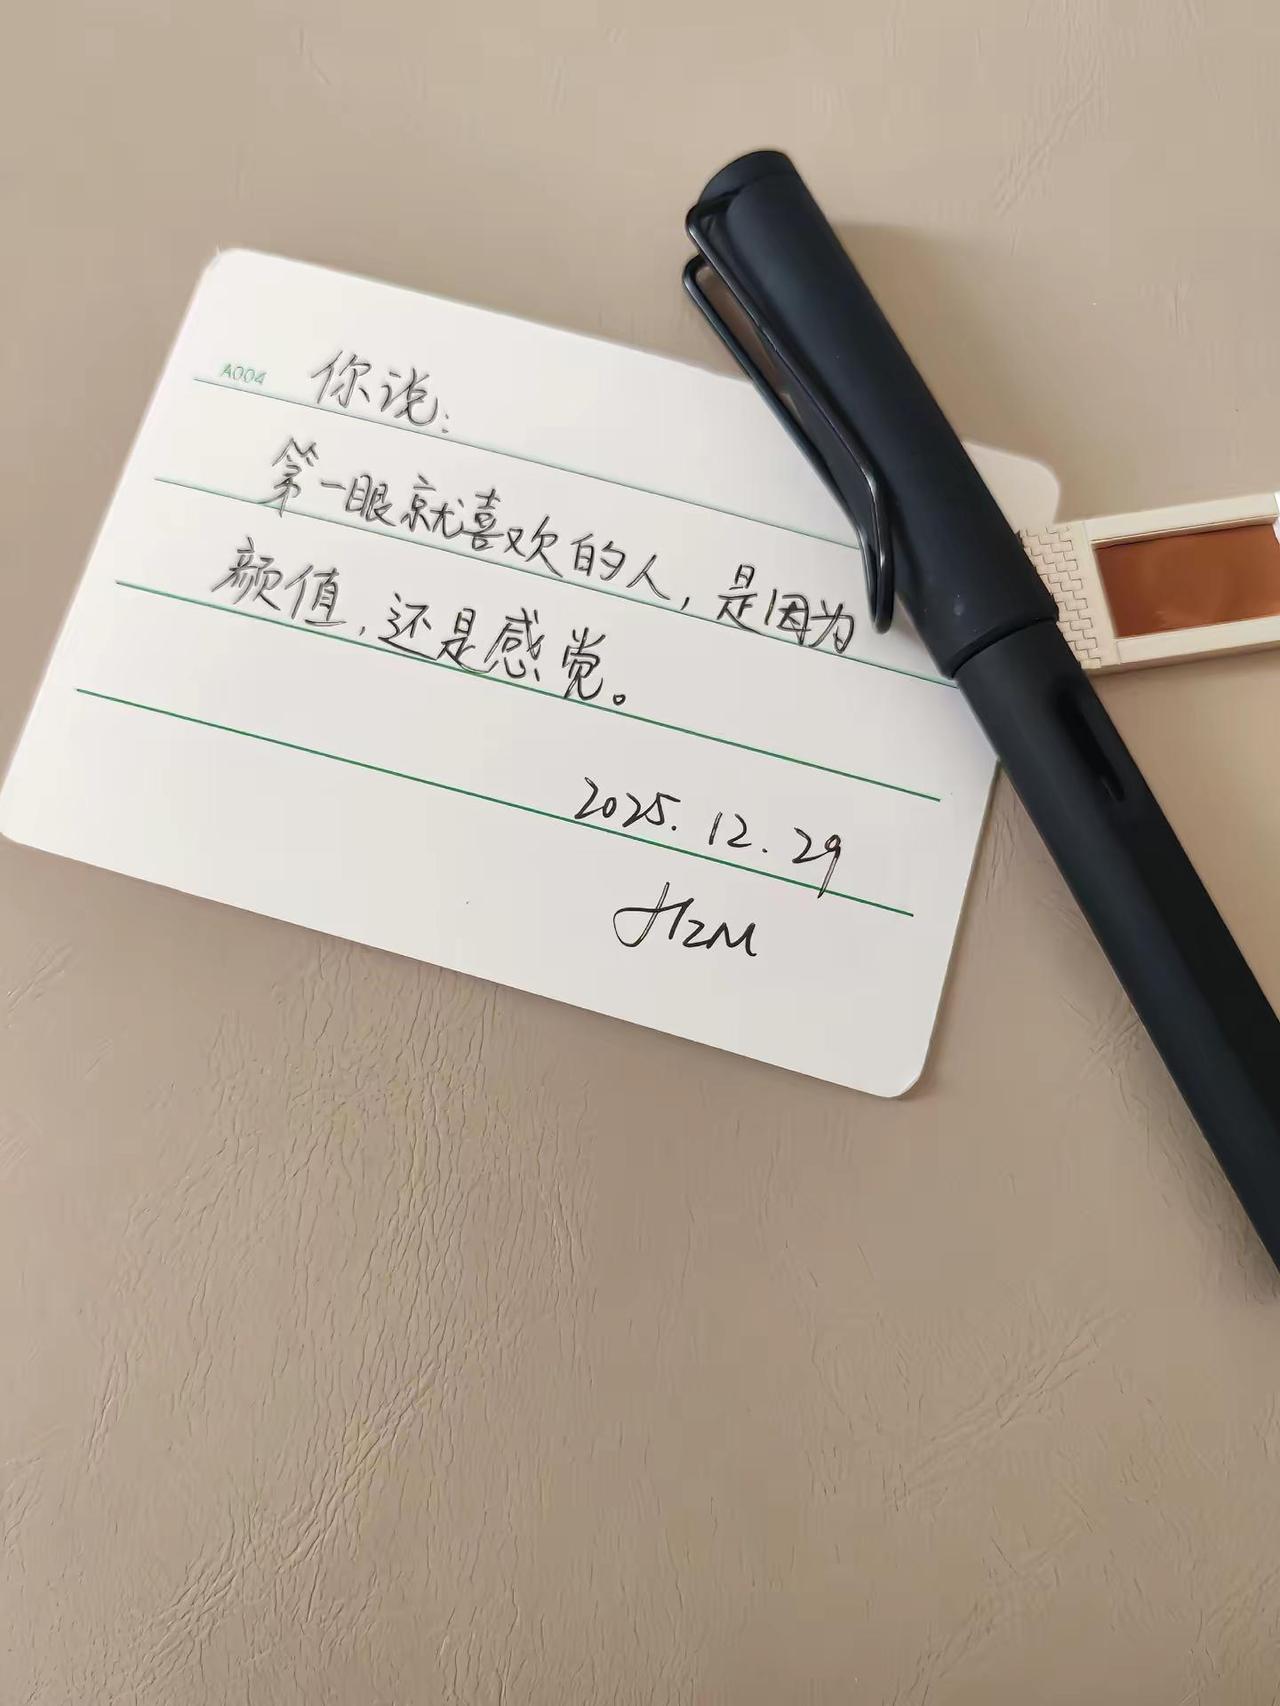 A004 你说:
第一眼就喜欢的人,是因为
颜值,还是感觉。
2025.12.29
HZM